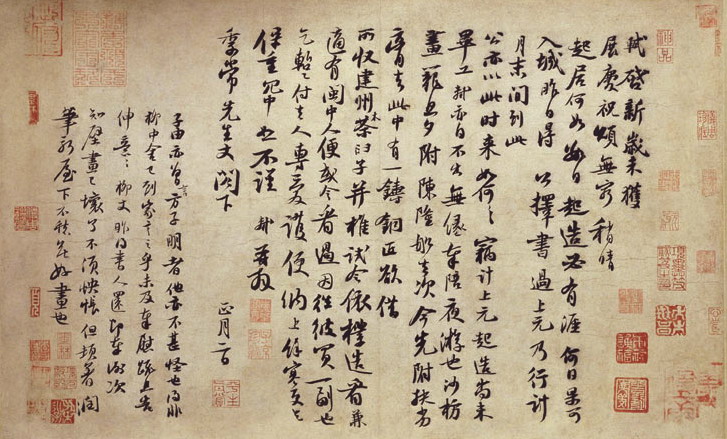 軾啓新歲未獲
展慶祝頌無窮稍晴
起居何如數日起造必有涯何日果可
入城昨日得公擇書過上元乃行計
月末間到此
公亦以此時來如何々竊計上元起造尚未
畢工軾亦自不出無緣奉陪夜游也沙枋
畫籠旦夕附陳隆船去次今先附扶劣
膏去此中有一鑄銅匠欲借
所收建州木茶臼子并椎試令依樣造看兼
適有閩中人便或令看過因往彼買一副也
乞暫付去人專愛護便納上餘寒更乞
保重冗中恕不謹軾再拜
季常先生丈閣下
正月二日
子由亦曾言方子明者他亦不甚怪也得非
柳中舍已到家言之乎未及奉慰疏且告
伸意々柳丈昨得書人還即奉謝次
知壁畫已壞了不須怏悵但頓着潤
筆新屋下不愁無好畫也